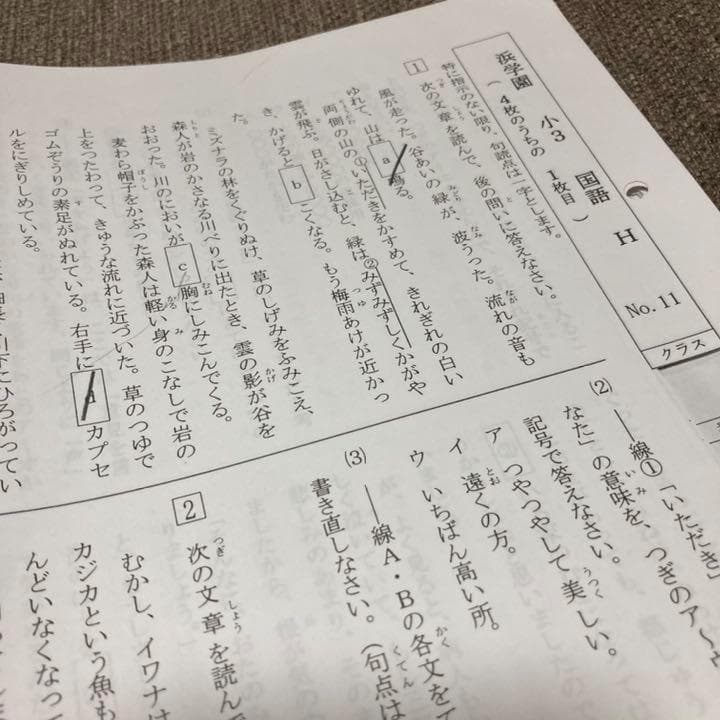 浜学園 小3 国語 H No.11
(4枚のうちの 1枚目)
クラス
特に指示のない限り、句読点は一字とします。
1 次の文章を読んで、後の問いに答えなさい。
風が走った。谷あいの緑が、波うった。流れの音も
ゆれて、山は a 鳴る。
両側の山の①いただきをかすめて、きれぎれの白い
雲が飛ぶ。日がさし込むと、緑は②みずみずしくかがや
き、かげると b こくなる。もう梅雨あけが近かっ
た。
ミズナラの林をくぐりぬけ、草のしげみをふみこえ、
森人が岩のかさなる川べりに出たとき、雲の影が谷を
おおった。川のにおいが c 胸にしみこんでくる。
麦わら帽子をかぶった森人は軽い身のこなしで岩の
上をつたわって、きゅうな流れに近づいた。草のつゆで
ゴムぞうりの素足がぬれている。右手に d カプセ
ルをにぎりしめている。
(2) ――線①「いただき」
なた」の意味を、つぎのア〜ウ
記号で答えなさい。
ア つやつやして美しい。
イ 遠くの方。
ウ いちばん高い所。
(3) ――線A・Bの各文をて
書き直しなさい。(句点は
2 次の文章を読んで
むかし、イワナは
カジカという魚も
んどいなくなっ